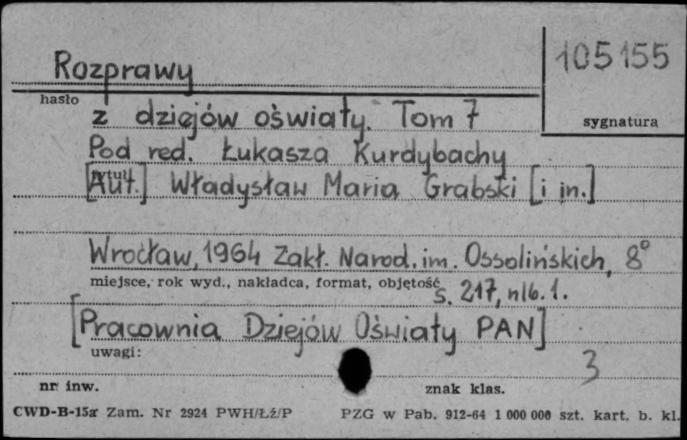 105155
Rozprawy
hasło
z dziejów oświaty. Tom 7
sygnatura
Pod red. Łukasza Kurdybachy
tytuł
[Aut.] Władysław Maria Grabski [i in.]
Wrocław, 1964 Zakł. Narod. im. Ossolińskich, 8°
miejsce, rok wyd., nakładca, format, objętość
s. 217, nlb. 1.
[Pracownia Dziejów Oświaty PAN]
uwagi:
3
nr inw.
znak klas.
CWD-B-15a Zam. Nr 2924 PWH/Łź/P PZG w Pab. 912-64 1 000 000 szt. kart. b. kl.